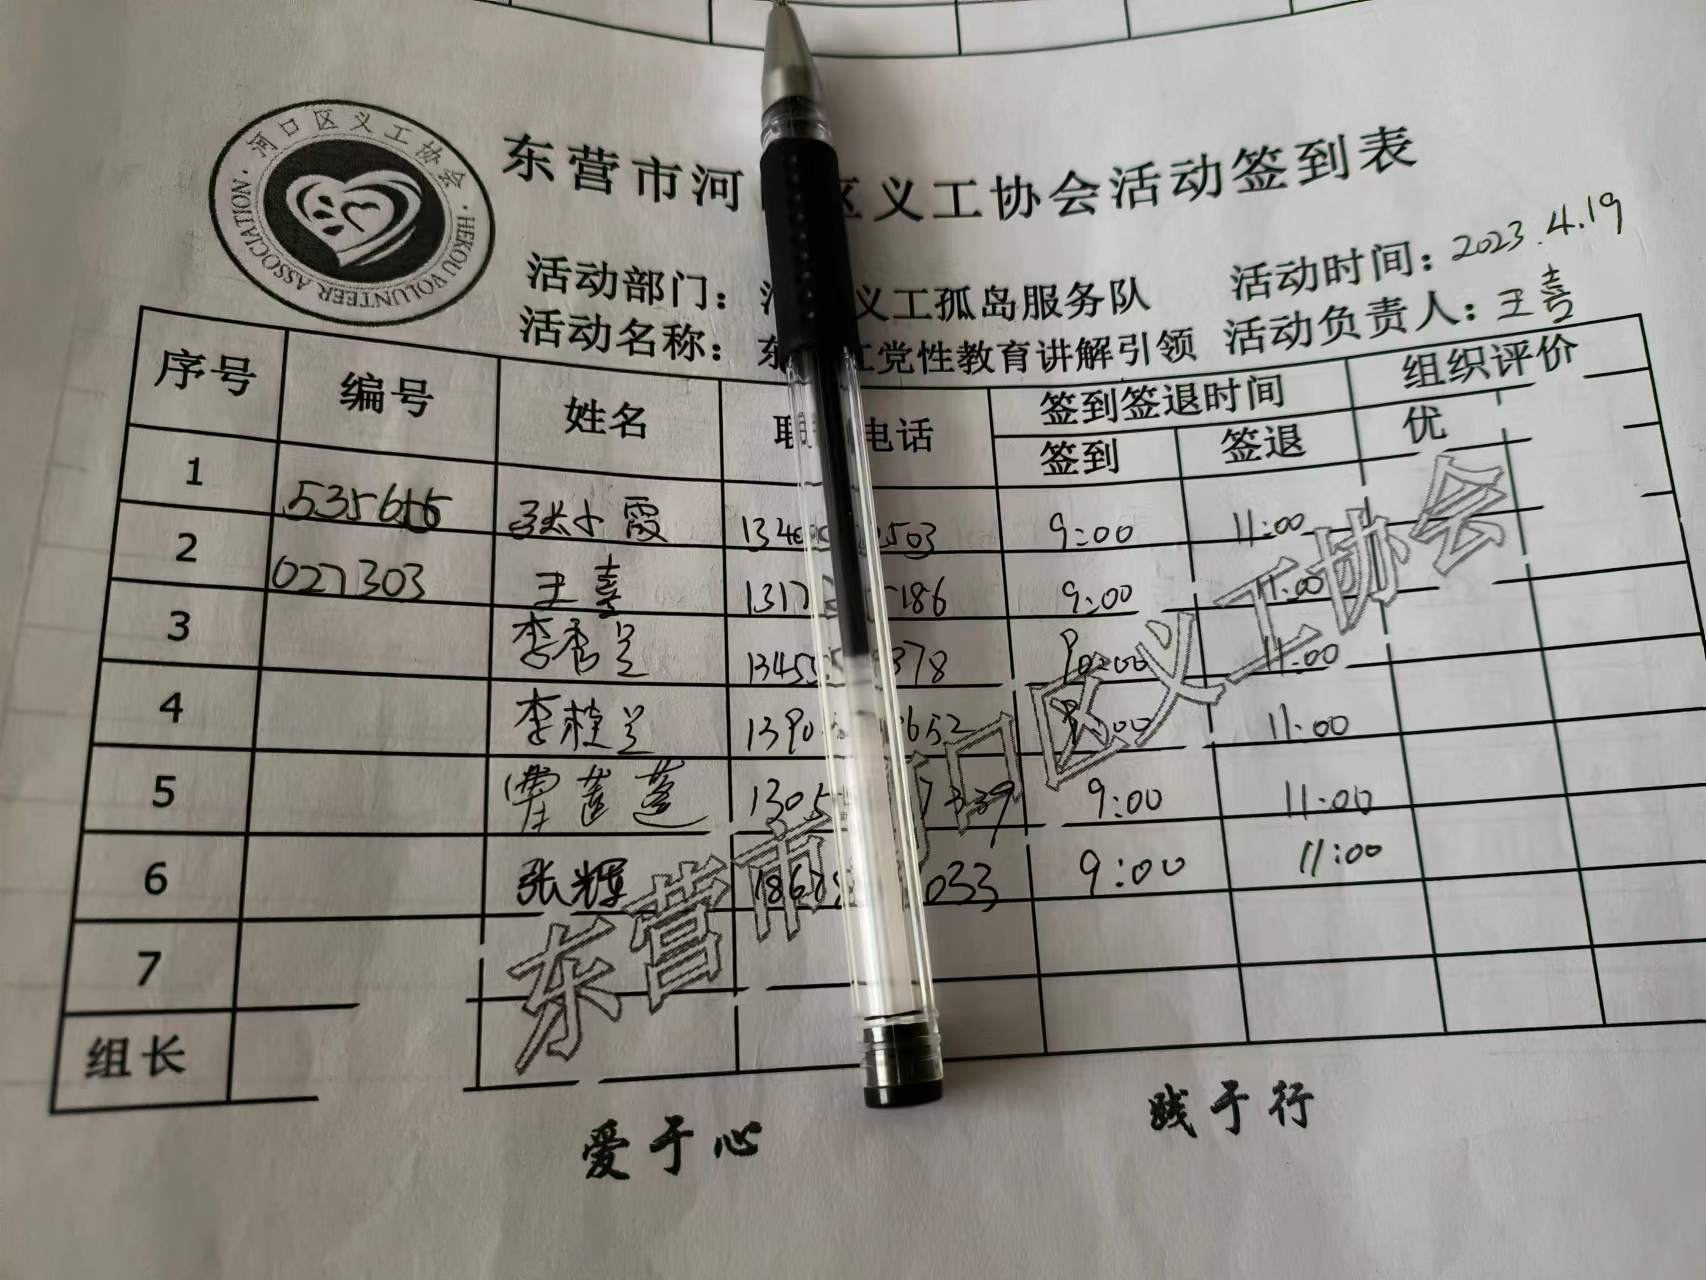 河口区义工协会
HEKOU VOLUNTEER ASSOCIATION
东营市河 区义工协会活动签到表
活动部门： 义工孤岛服务队 活动时间：2023.4.19
活动名称：东 红党性教育讲解引领 活动负责人：王喜
序号 编号 姓名 联 电话 签到签退时间 组织评价
签到 签退 优
1 小霞 503 9:00 11:00
2 027303 王喜 1317 186 9:00 11:00
3 李秀兰 1345 378 11:00
4 李桂兰 1390 652 11:00
5 1305 339 9:00 11:00
6 张辉 186 033 9:00 11:00
7
组长
东营市河口区义工协会
爱于心 践于行